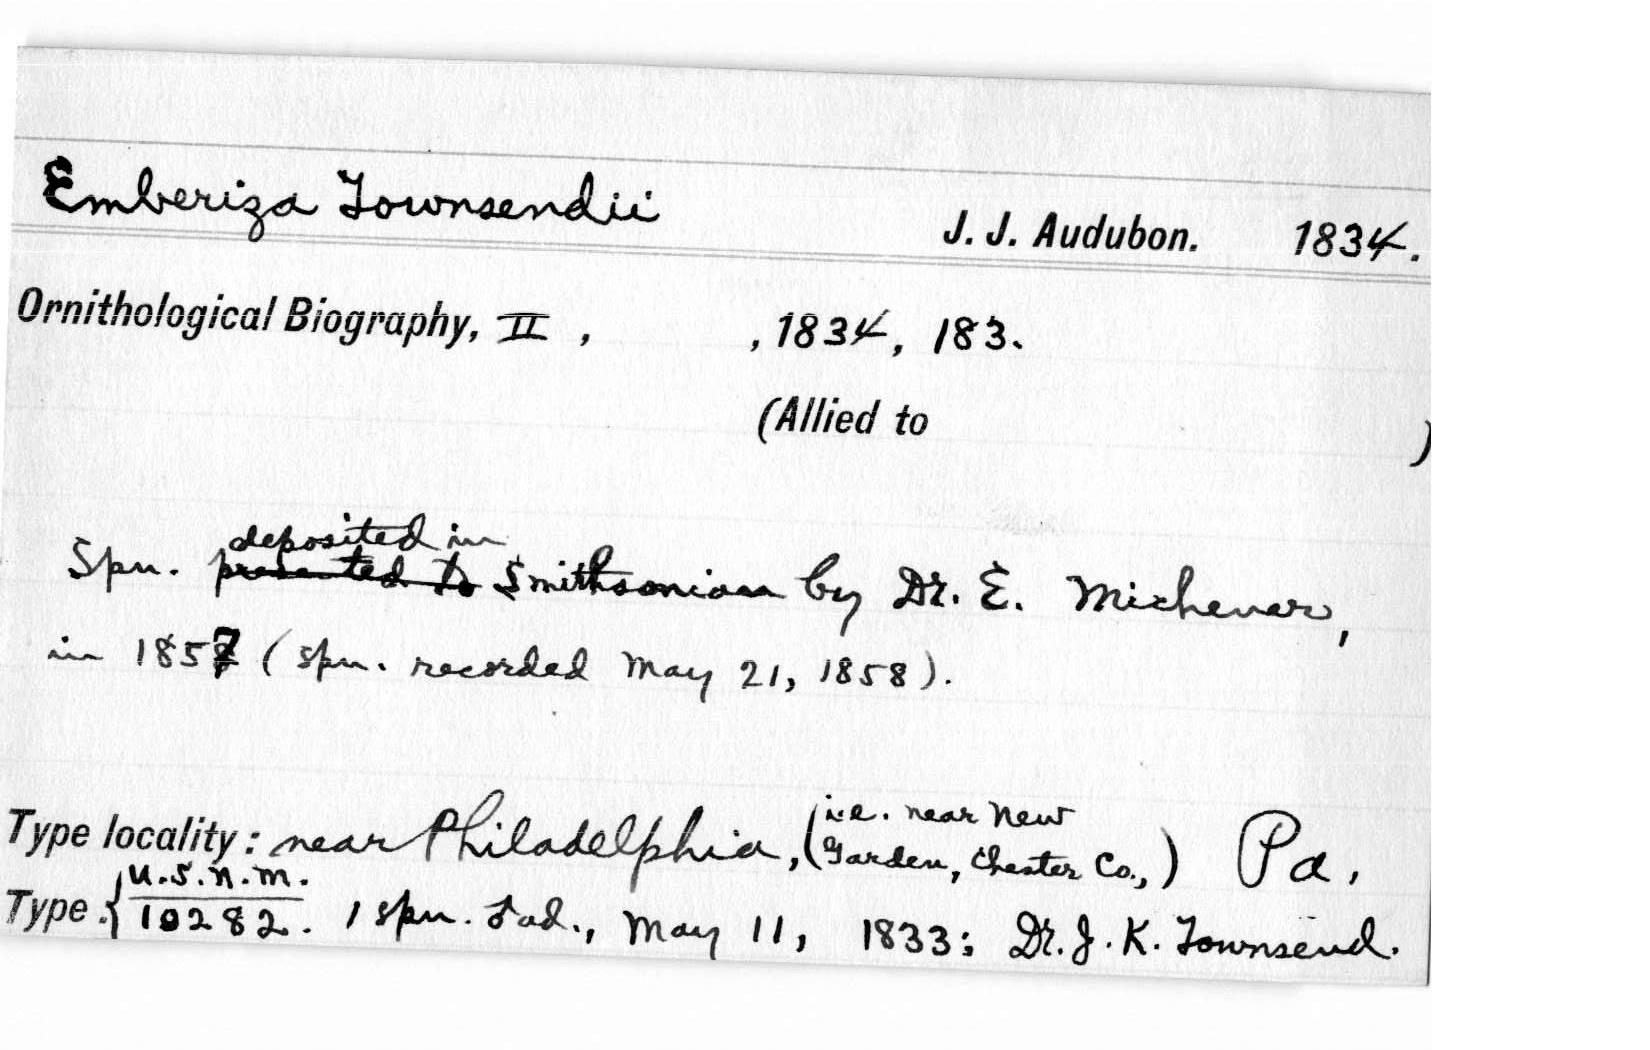 Emberiza Townsendii J. J. Audubon. 1834.
Ornithological Biography, II , , 1834, 183.
(Allied to )
deposited in
Spn. presented to Smithsonian by Dr. E. Michener,
in 1857 (spn. recorded May 21, 1858).
i.e. near New
Type locality: near Philadelphia, (Garden, Chester Co.,) Pa.
U.S.N.M.
Type { 10282. 1 spn. ♂ ad., May 11, 1833; Dr. J. K. Townsend.